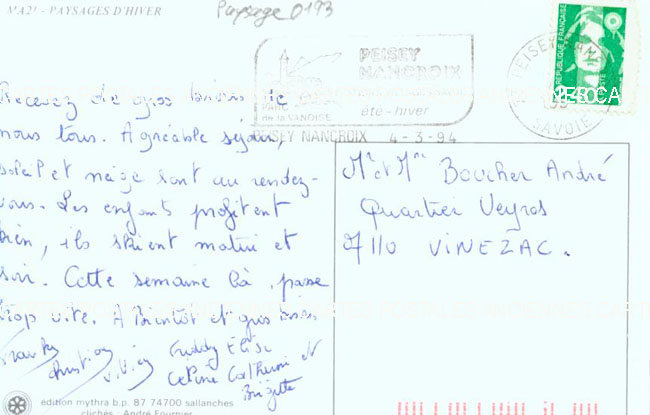 MA21 - PAYSAGES D'HIVER
Paysage 0193
PEISEY
NANCROIX
PARC
de la VANOISE
été - hiver
PEISEY NANCROIX 4-3-94
SAVOIE
REPUBLIQUE FRANÇAISE
Recevez de gros bisous de
nous tous. Agréable séjour,
soleil et neige sont au rendez-
vous. Les enfants profitent
bien, ils skient matin et
soir. Cette semaine là, passe
trop vite. A bientôt et gros bisous
Christian Freddy Elise
Céline Catherine et
Brigitte
Mr et Mme Boucher André
Quartier Veyras
07110 VINEZAC.
CARTES POSTALES ANCIENNES CARTES
édition mythra b.p. 87 74700 sallanches
clichés : André Fournier